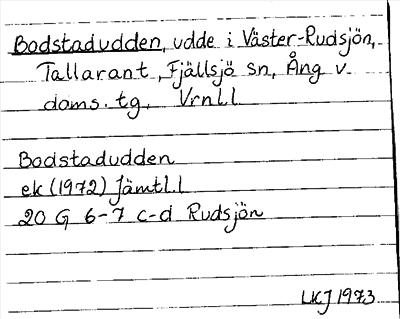 Bodstadudden, udde i Väster-Rudsjön,
Tallarant, Fjällsjö sn, Ång v.
doms. tg. Vrnll
Bodstadudden
ek (1972) Jämtl.l
20 G 6-7 c-d Rudsjön
LKJ 1973